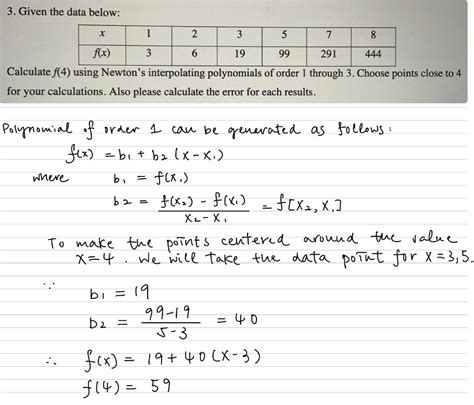 3. Given the data below:
x 1 2 3 5 7 8
f(x) 3 6 19 99 291 444
Calculate f(4) using Newton's interpolating polynomials of order 1 through 3. Choose points close to 4
for your calculations. Also please calculate the error for each results.
Polynomial of order 1 can be generated as follows:
f(x) = b₁ + b₂ (x - x₁)
where b₁ = f(x₁)
b₂ = f(x₂) - f(x₁) / x₂ - x₁ = f[x₂, x₁]
To make the points centered around the value
x=4. We will take the data point for x=3,5.
∵
b₁ = 19
b₂ = 99-19 / 5-3 = 40
∴ f(x) = 19 + 40 (x-3)
f(4) = 59